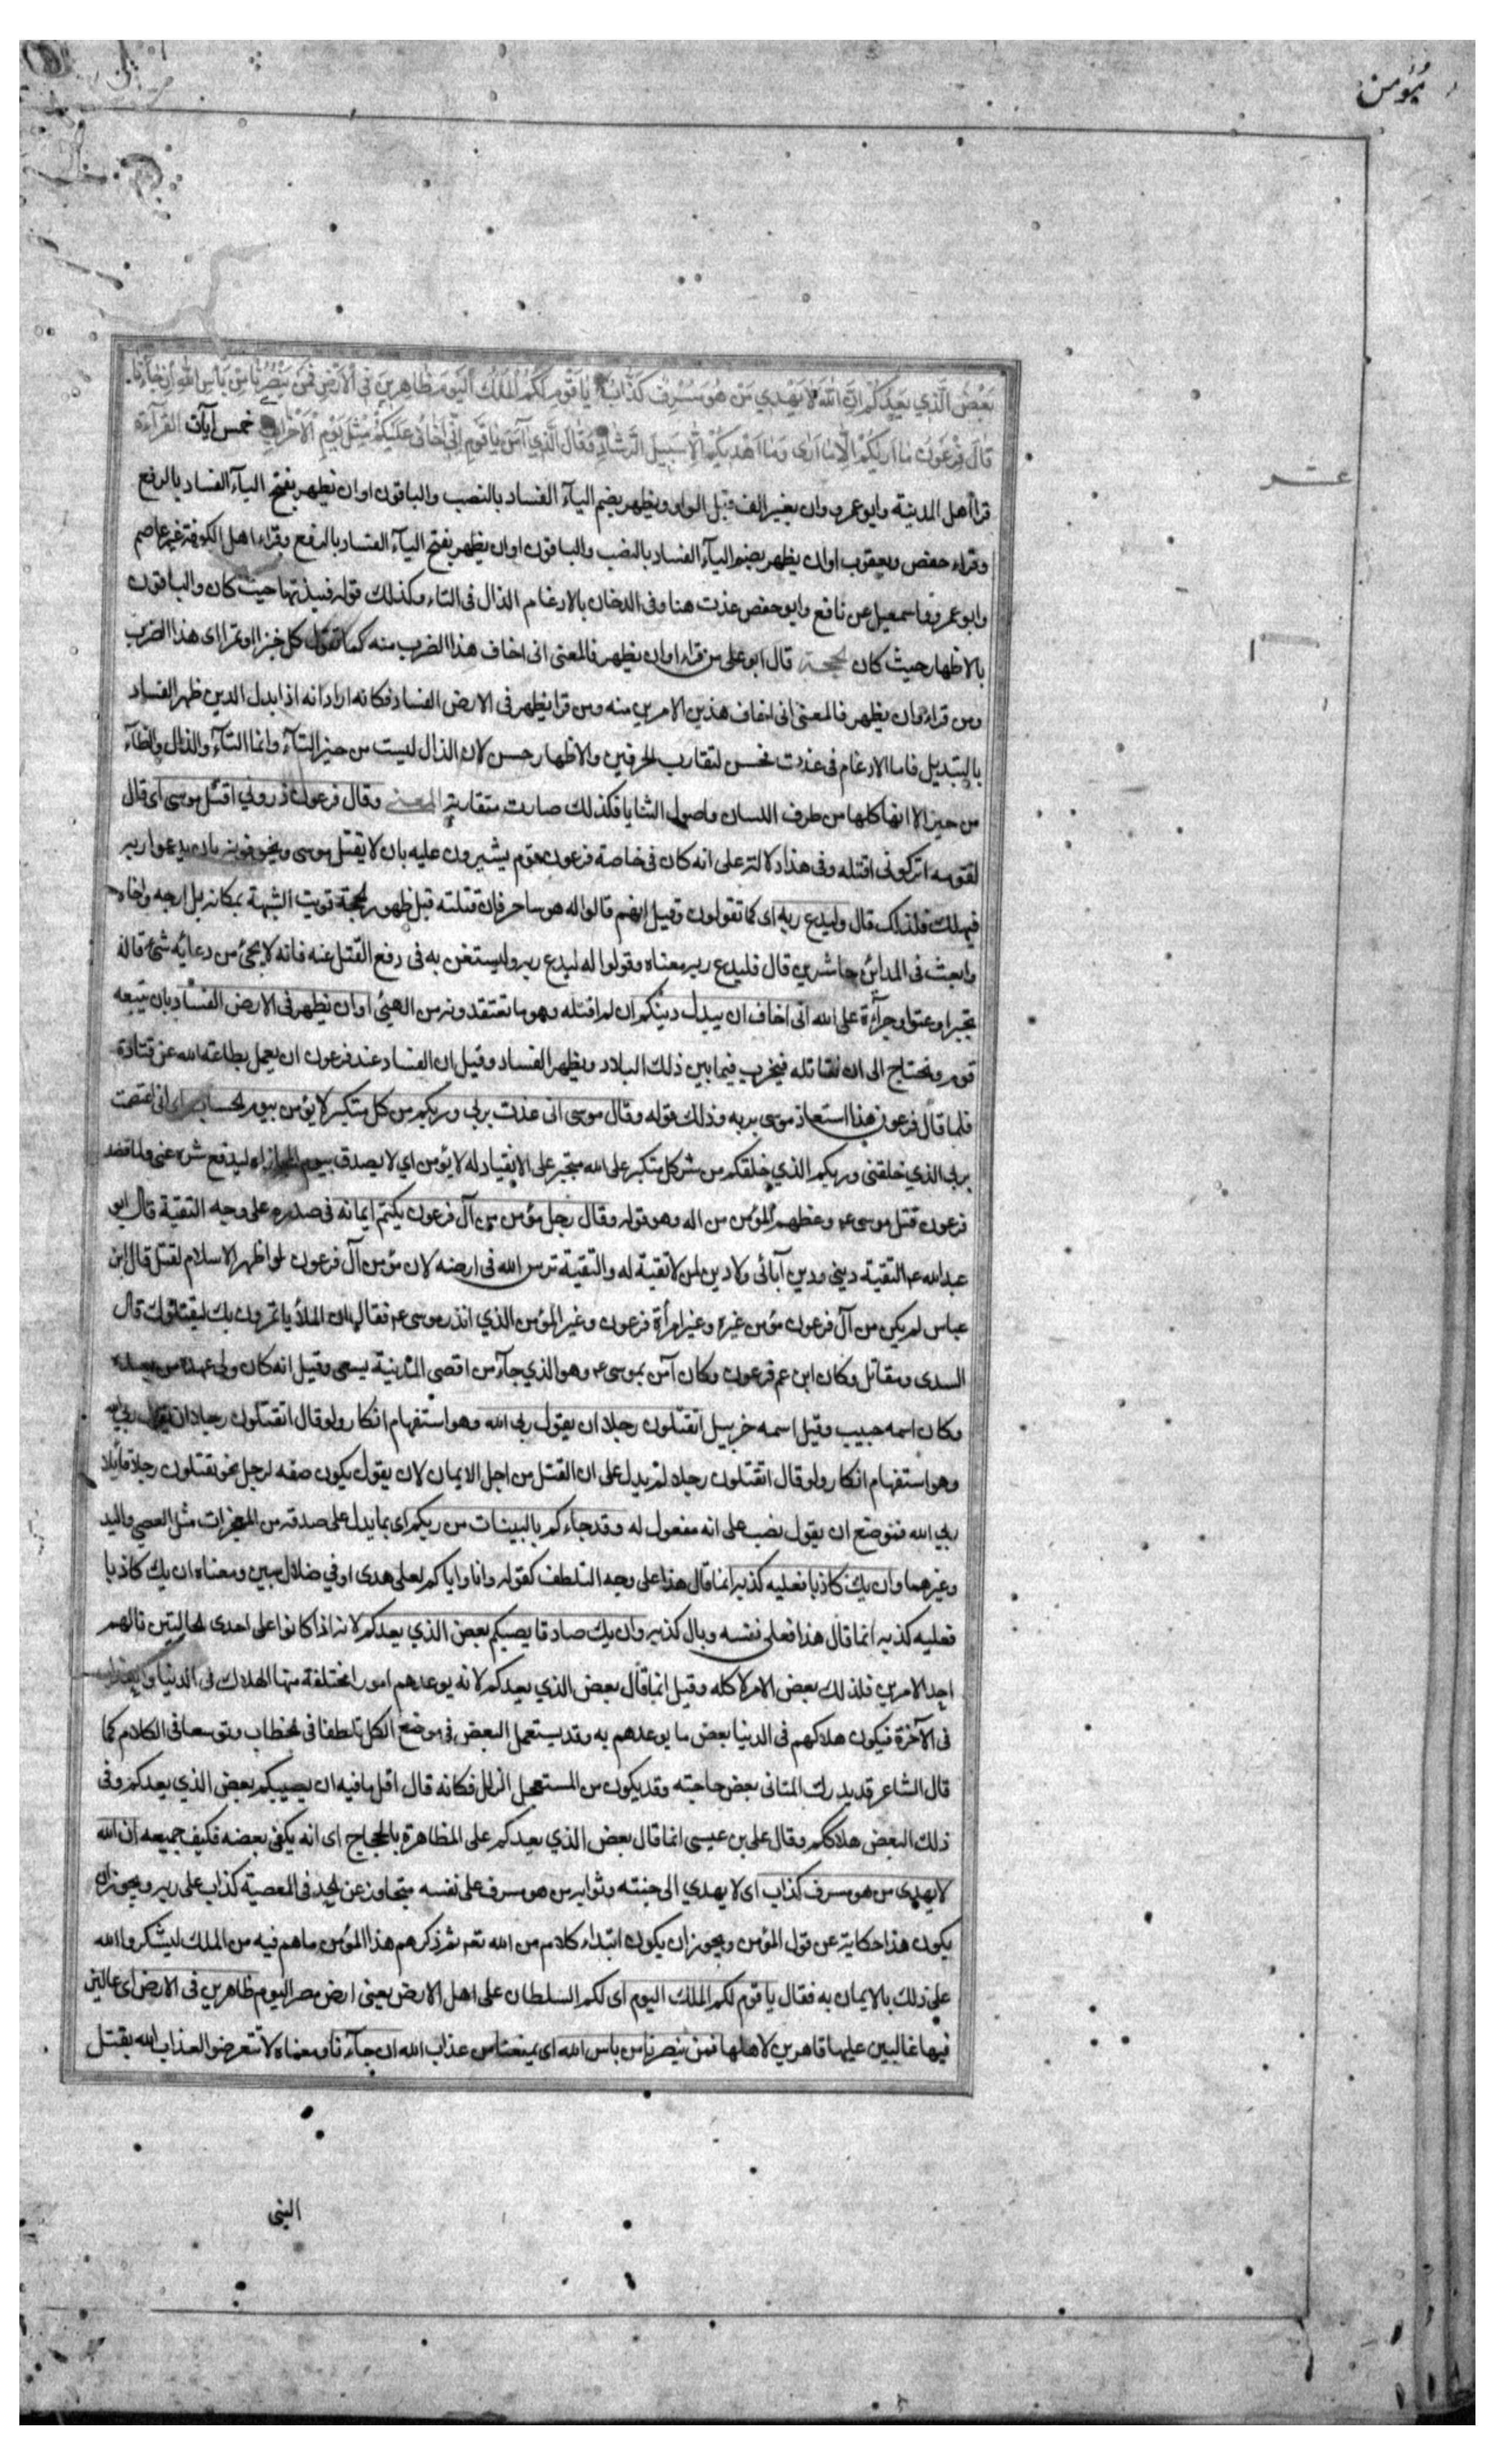 يؤمن
بَعْضُ الَّذي يَعِدُكُمْ اِنَّ اللهَ لا يَهْدي مَنْ هُوَ مُسْرِفٌ كَذّابٌ يا قَوْمِ لَكُمُ الْمُلْكُ الْيَوْمَ ظاهِرينَ فِي الْاَرْضِ فَمَنْ يَنْصُرُنا مِنْ بَأسِ اللهِ اِنْ جاءَنا
قالَ فِرْعَوْنُ ما اُريكُمْ اِلّا ما اَرى وَما اَهْديكُمْ اِلّا سَبيلَ الرَّشادِ وَقالَ الَّذي آمَنَ يا قَوْمِ اِنّي اَخافُ عَلَيْكُمْ مِثْلَ يَوْمِ الْاَحْزابِ خمس آيات القرآءة
عشر
قرأ اهل المدينة وابو عمرو وان بغير الف قبل الواو ويظهر بضم اليآء الفساد بالنصب والباقون او ان يظهر بفتح اليآء الفساد بالرفع
وقراء حفص ويعقوب او ان يظهر بضم اليآء الفساد بالنصب والباقون او ان يظهر بفتح اليآء الفساد بالرفع وقراء اهل الكوفة غير عاصم
وابو عمرو واسمعيل عن نافع وابو حفص عذت هنا وفى الدخان بالادغام الذال فى التاء وكذلك قوله فنبذتها حيث كان والباقون
بالاظهار حيث كان الحجة قال ابو على من قرا او ان يظهر فالمعنى انى اخاف هذا الضرب منه كما تقول كل خبزا او تمرا اى هذا الضرب
ومن قراء وان يظهر فالمعنى انى اخاف هذين الامرين منه ومن قرا يظهر فى الارض الفساد فكانه اراد انه اذا بدل الدين ظهر الفساد
بالتبديل فاما الادغام فى عذت فحسن لتقارب الحرفين والاظهار حسن لان الذال ليست من حيز التآء وانما التآء والدال والطآء
من حيز الا انها كلها من طرف اللسان واصول الثنايا فكذلك صارت متقاربة المعنى وقال فرعون ذروني اقتل موسى اى قال
لقومه اتركونى اقتله وفى هذا دلالة على انه كان فى خاصة فرعون قوم يشيرون عليه بان لا يقتل موسى ويخوفونه بان يدعو ربه
فيهلك فلذلك قال وليدع ربه اى كما تقولون وقيل انهم قالوا له هو ساحر فان قتلته قبل ظهور الحجة قويت الشبهة بمكانه بل ارجه واخاه
وابعث فى المدائن حاشرين قال فليدع ربه معناه وقولوا له ليدع ربه وليستغن به فى دفع القتل عنه فانه لا يجئ من دعائه شئ قاله
تجبرا وعتوا وجرآءة على الله انى اخاف ان يبدل دينكم ان لم اقتله وهو ما تعتقدونه من الهيتى او ان يظهر فى الارض الفساد بان يتبعه
قوم ويحتاج الى ان نقاتله فيخرب فيما بين ذلك البلاد ويظهر الفساد وقيل ان الفساد عند فرعون ان يعمل بطاعة الله عن قتادة
فلما قال فرعون هذا استعاذ موسى بربه وذلك قوله وقال موسى انى عذت بربي وربكم من كل متكبر لا يؤمن بيوم الحساب اى انى اعتصمت
بربى الذي خلقنى وربكم الذي خلقكم من شر كل متكبر على الله متجبر على الانقياد له لا يؤمن اي لا يصدق بيوم المجازاة ليدفع شره عنى ولما قصد
فرعون قتل موسى ع وعظهم المؤمن من اله وهو قوله وقال رجل مؤمن من آل فرعون يكتم ايمانه فى صدره على وجه التقية قال ابو
عبد الله ع التقية ديني ودين آبائى ولا دين لمن لا تقية له والتقية ترس الله فى ارضه لان مؤمن آل فرعون لو اظهر الاسلام لقتل قال ابن
عباس لم يكن من آل فرعون مؤمن غيره وغير امرأة فرعون وغير المؤمن الذي انذر موسى ع فقال ان الملأ ياتمرون بك ليقتلوك قال
السدى ومقاتل وكان ابن عم فرعون وكان آمن بموسى ع وهو الذي جآء من اقصى المدينة يسعى وقيل انه كان ولى عهده من بعده
وكان اسمه حبيب وقيل اسمه خربيل اتقتلون رجلا ان يقول ربى الله وهو استفهام انكار ولو قال اتقتلون رجلا ان يقول ربى الله
وهو استفهام انكار ولو قال اتقتلون رجلا لم يدل على ان القتل من اجل الايمان لان يقول يكون صفه لرجل نحو يقتلون رجلا قايلا
ربى الله فموضع ان يقول نصب على انه مفعول له وقد جاءكم بالبينات من ربكم اى بما يدل على صدقه من المعجزات مثل العصى واليد
وغيرهما وان يك كاذبا فعليه كذبه انما قال هذا على وجه التلطف كقوله وانا واياكم لعلى هدى او في ضلال مبين ومعناه ان يك كاذبا
فعليه كذبه انما قال هذا فعلى نفسه وبال كذبه وان يك صادقا يصبكم بعض الذي يعدكم لانه اذا كانوا على احدى الحالتين نالهم
احد الامرين فلذلك بعض الامر لا كله وقيل انما قال بعض الذي يعدكم لانه يوعدهم امورا مختلفة منها الهلاك فى الدنيا والعذاب
فى الآخرة فيكون هلاكهم فى الدنيا بعض ما يوعدهم به وقد يستعمل البعض فى موضع الكل تلطفا فى الخطاب وتوسعا فى الكلام كما
قال الشاعر قد يدرك المتانى بعض حاجته وقد يكون من المستعجل الزلل فكانه قال اقل ما فيه ان يصيبكم بعض الذي يعدكم وفى
ذلك البعض هلاككم وقال على بن عيسى انما قال بعض الذي يعدكم على المظاهرة بالحجاج اى انه يكفى بعضه فكيف جميعه ان الله
لا يهدى من هو مسرف كذاب اى لا يهدي الى جنته وثوابه من هو مسرف على نفسه متجاوز عن الحد فى المعصية كذاب على ربه ويجوز ان
يكون هذا حكاية عن قول المؤمن ويجوز ان يكون ابتداء كلام من الله تع ثم ذكرهم هذا المؤمن ما هم فيه من الملك ليشكروا الله
على ذلك بالايمان به فقال يا قوم لكم الملك اليوم اى لكم السلطان على اهل الارض يعنى ارض مصر اليوم ظاهرين فى الارض اى عالين
فيها غالبين عليها قاهرين لاهلها فمن ينصرنا من باس الله اى يمنعنا من عذاب الله ان جآءنا ومعناه لا تتعرضوا لعذاب الله بقتل
النبى